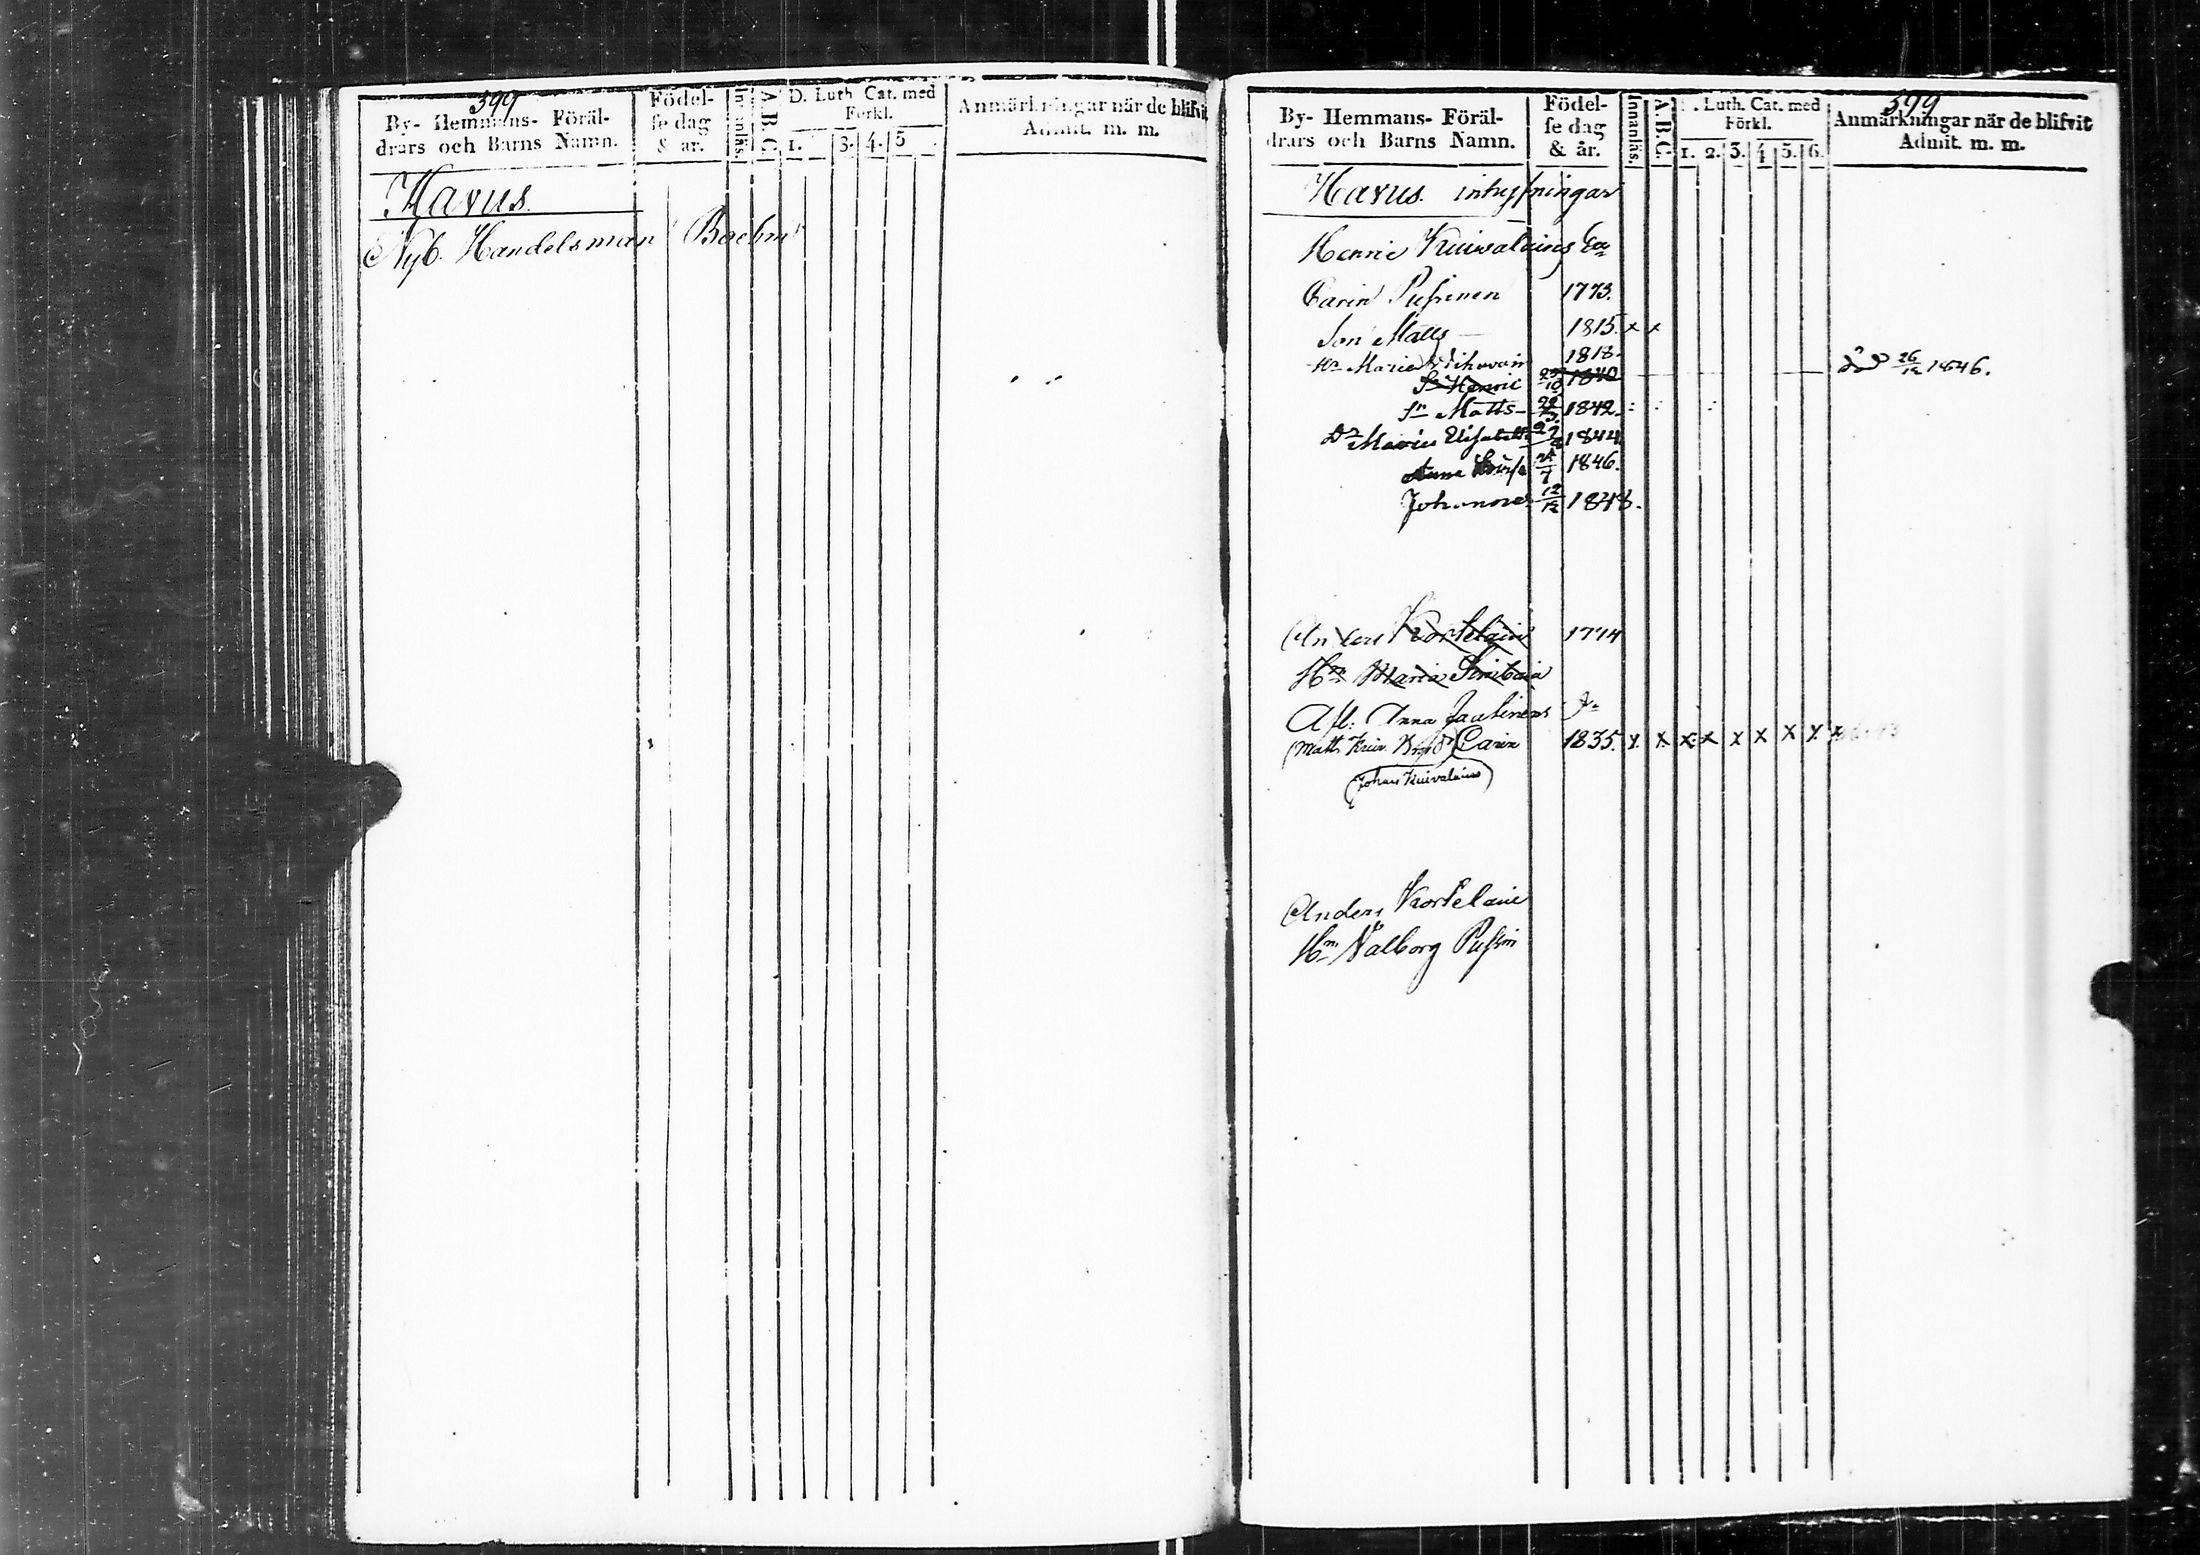 399
By- Hemmans- Föräl-
drars och Barns Namn.
Födel-
se dag
& år.
Innanläs.
A. B. C.
D. Luth. Cat. med
Förkl.
1. 3. 4. 5
Anmärkningar när de blifvit
Admit. m. m.
Havus.
Nyb. Handelsman Boehm
399
By- Hemmans- Föräl-
drars och Barns Namn.
Födel-
se dag
& år.
Innanläs.
A. B. C.
. Luth. Cat. med
Förkl.
1. 2. 3. 4 5. 6.
Anmärkningar när de blifvit
Admit. m. m.
Havus. inhysningar
Henric Kuivalains Ea
Carin Pussinen 1773.
Son Matts 1815. x x
Hu Maria 1818.
Sn Henric 25/10 1840 död 26/12 1846.
Sn Matts 1842.
Dr Maria Elisabeth 1844
Anna 1846.
Johannes 12/12 1848.
Anders Kortelain 1774
Hu Maria
Afl: Anna
(Matts Kuiv. Carin 1835. x x x x x x x x
(Johan Kuivalain)
Anders Kortelain
Hu Valborg Pussin